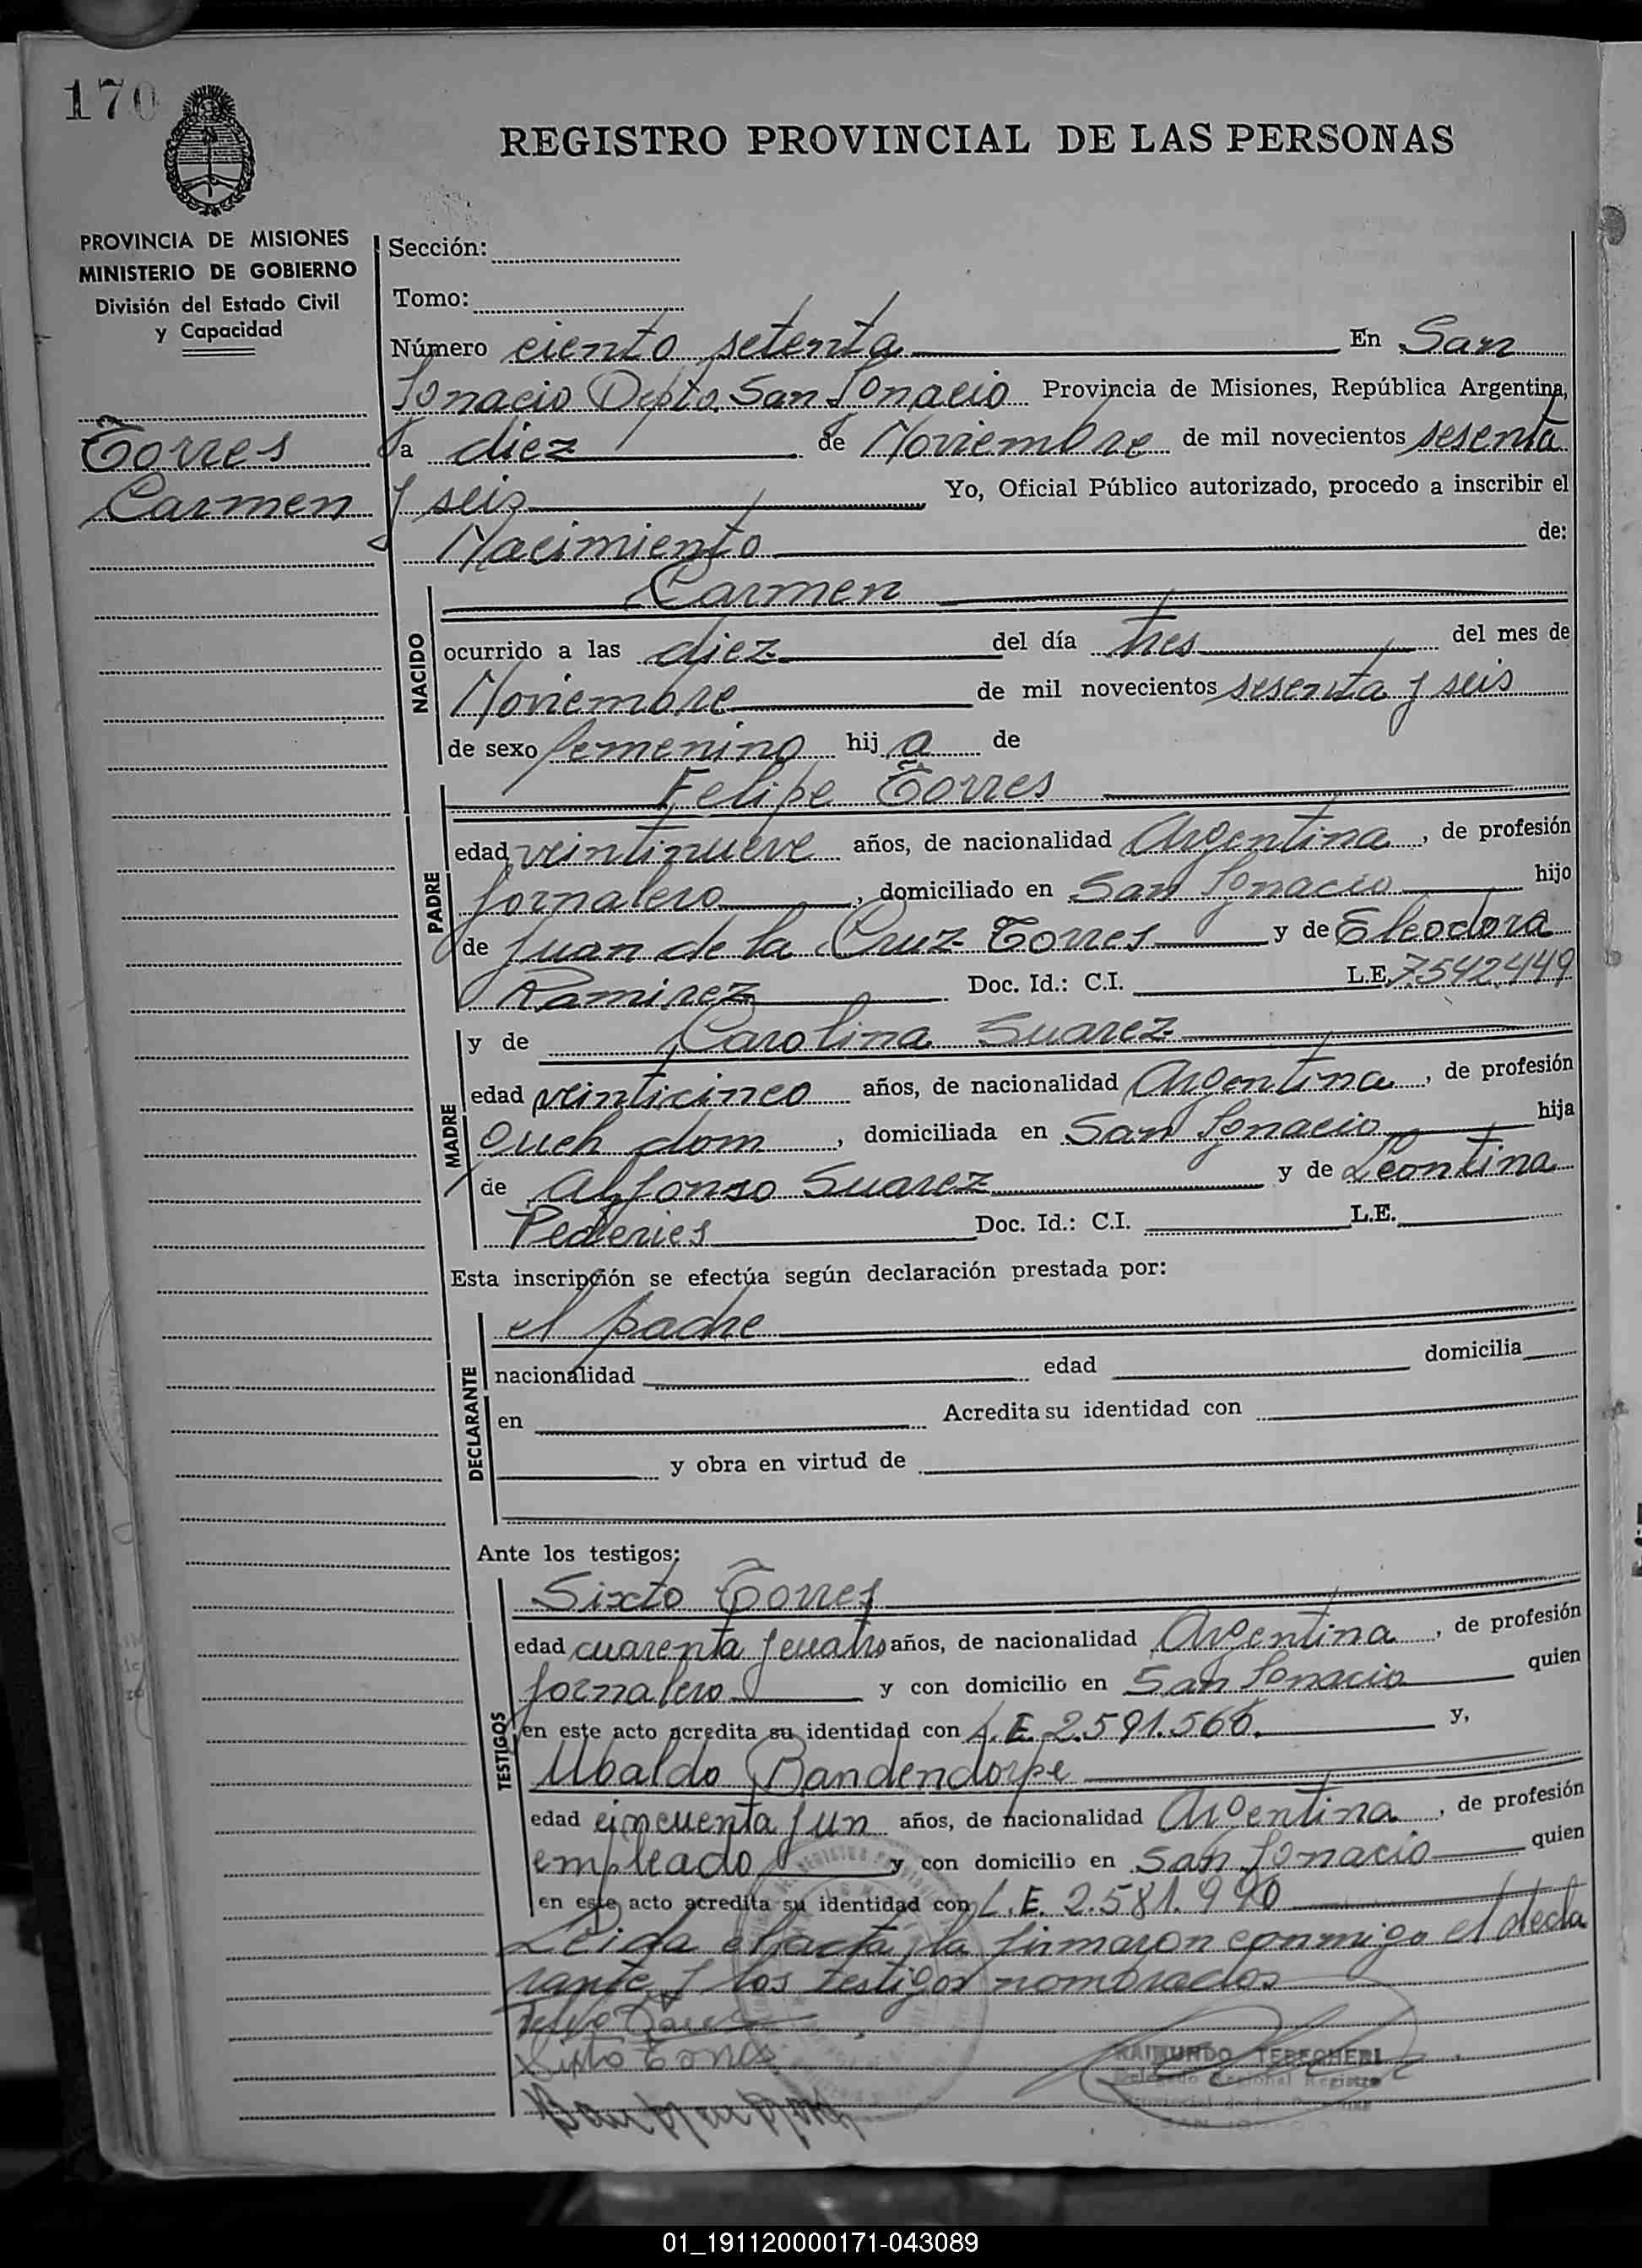 170
REGISTRO PROVINCIAL DE LAS PERSONAS
PROVINCIA DE MISIONES
MINISTERIO DE GOBIERNO
División del Estado Civil
y Capacidad
Torres
Carmen
Sección:
Tomo:
Número ciento setenta En San
Ignacio Depto. San Ignacio Provincia de Misiones, República Argentina,
a diez de Noviembre de mil novecientos sesenta
y seis Yo, Oficial Público autorizado, procedo a inscribir el
Nacimiento de:
NACIDO
Carmen
ocurrido a las diez del día tres del mes de
Noviembre de mil novecientos sesenta y seis
de sexo femenino hij a de
PADRE
Felipe Torres
edad veintinueve años, de nacionalidad Argentina, de profesión
jornalero, domiciliado en San Ignacio hijo
de Juan de la Cruz Torres y de Eleodora
Ramirez Doc. Id.: C.I. L.E. 7.542.449
MADRE
y de Carolina Suarez
edad veinticinco años, de nacionalidad Argentina, de profesión
Queh dom, domiciliada en San Ignacio hija
de Alfonso Suarez y de Leontina
Doc. Id.: C.I. L.E.
Esta inscripción se efectúa según declaración prestada por:
DECLARANTE
el padre
nacionalidad edad domicilia
en Acredita su identidad con
y obra en virtud de
Ante los testigos:
TESTIGOS
Sixto Torres
edad cuarenta y cuatro años, de nacionalidad Argentina, de profesión
jornalero y con domicilio en San Ignacio quien
en este acto acredita su identidad con L.E. 2.591.566. y,
Ubaldo Bandendorpe
edad cincuenta y un años, de nacionalidad Argentina, de profesión
empleado y con domicilio en San Ignacio quien
en este acto acredita su identidad con L.E. 2.581.990
Leida el acta, la firmaron conmigo el decla
rante y los testigos nombrados
Sixto Torres
RAIMUNDO TEREGHERI
Delegado Regional Registro
01_191120000171-043089